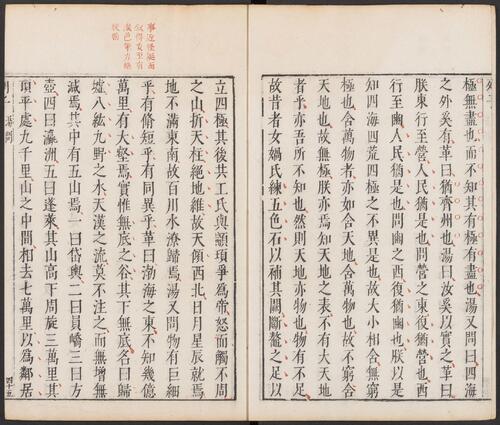 極無盡也而不知其有極有盡也湯又問曰四海
之外奚有革曰猶齊州也湯曰汝奚以實之革曰
朕東行至營人民猶是也問營之東復猶營也西
行至豳人民猶是也問豳之西復猶豳也朕以是
知四海四荒四極之不異是也故大小相含無窮
極也含萬物者亦如含天地含萬物也故不窮含
天地也故無極朕亦焉知天地之表不有大天地
者乎亦吾所不知也然則天地亦物也物有不足
故昔者女媧氏練五色石以補其闕斷鼇之足以
事近怪誕而
立四極其後共工氏與顓頊爭爲帝怒而觸不周
之山折天柱絕地維故天傾西北日月星辰就焉
地不滿東南故百川水潦歸焉湯又問物有巨細
乎有修短乎有同異乎革曰渤海之東不知幾億
萬里有大壑焉實惟無底之谷其下無底名曰歸
墟八紘九野之水天漢之流莫不注之而無增無
減焉其中有五山焉一曰岱輿二曰員嶠三曰方
壺四曰瀛洲五曰蓬萊其山高下周旋三萬里其
頂平處九千里山之中間相去七萬里以爲鄰居
四十五